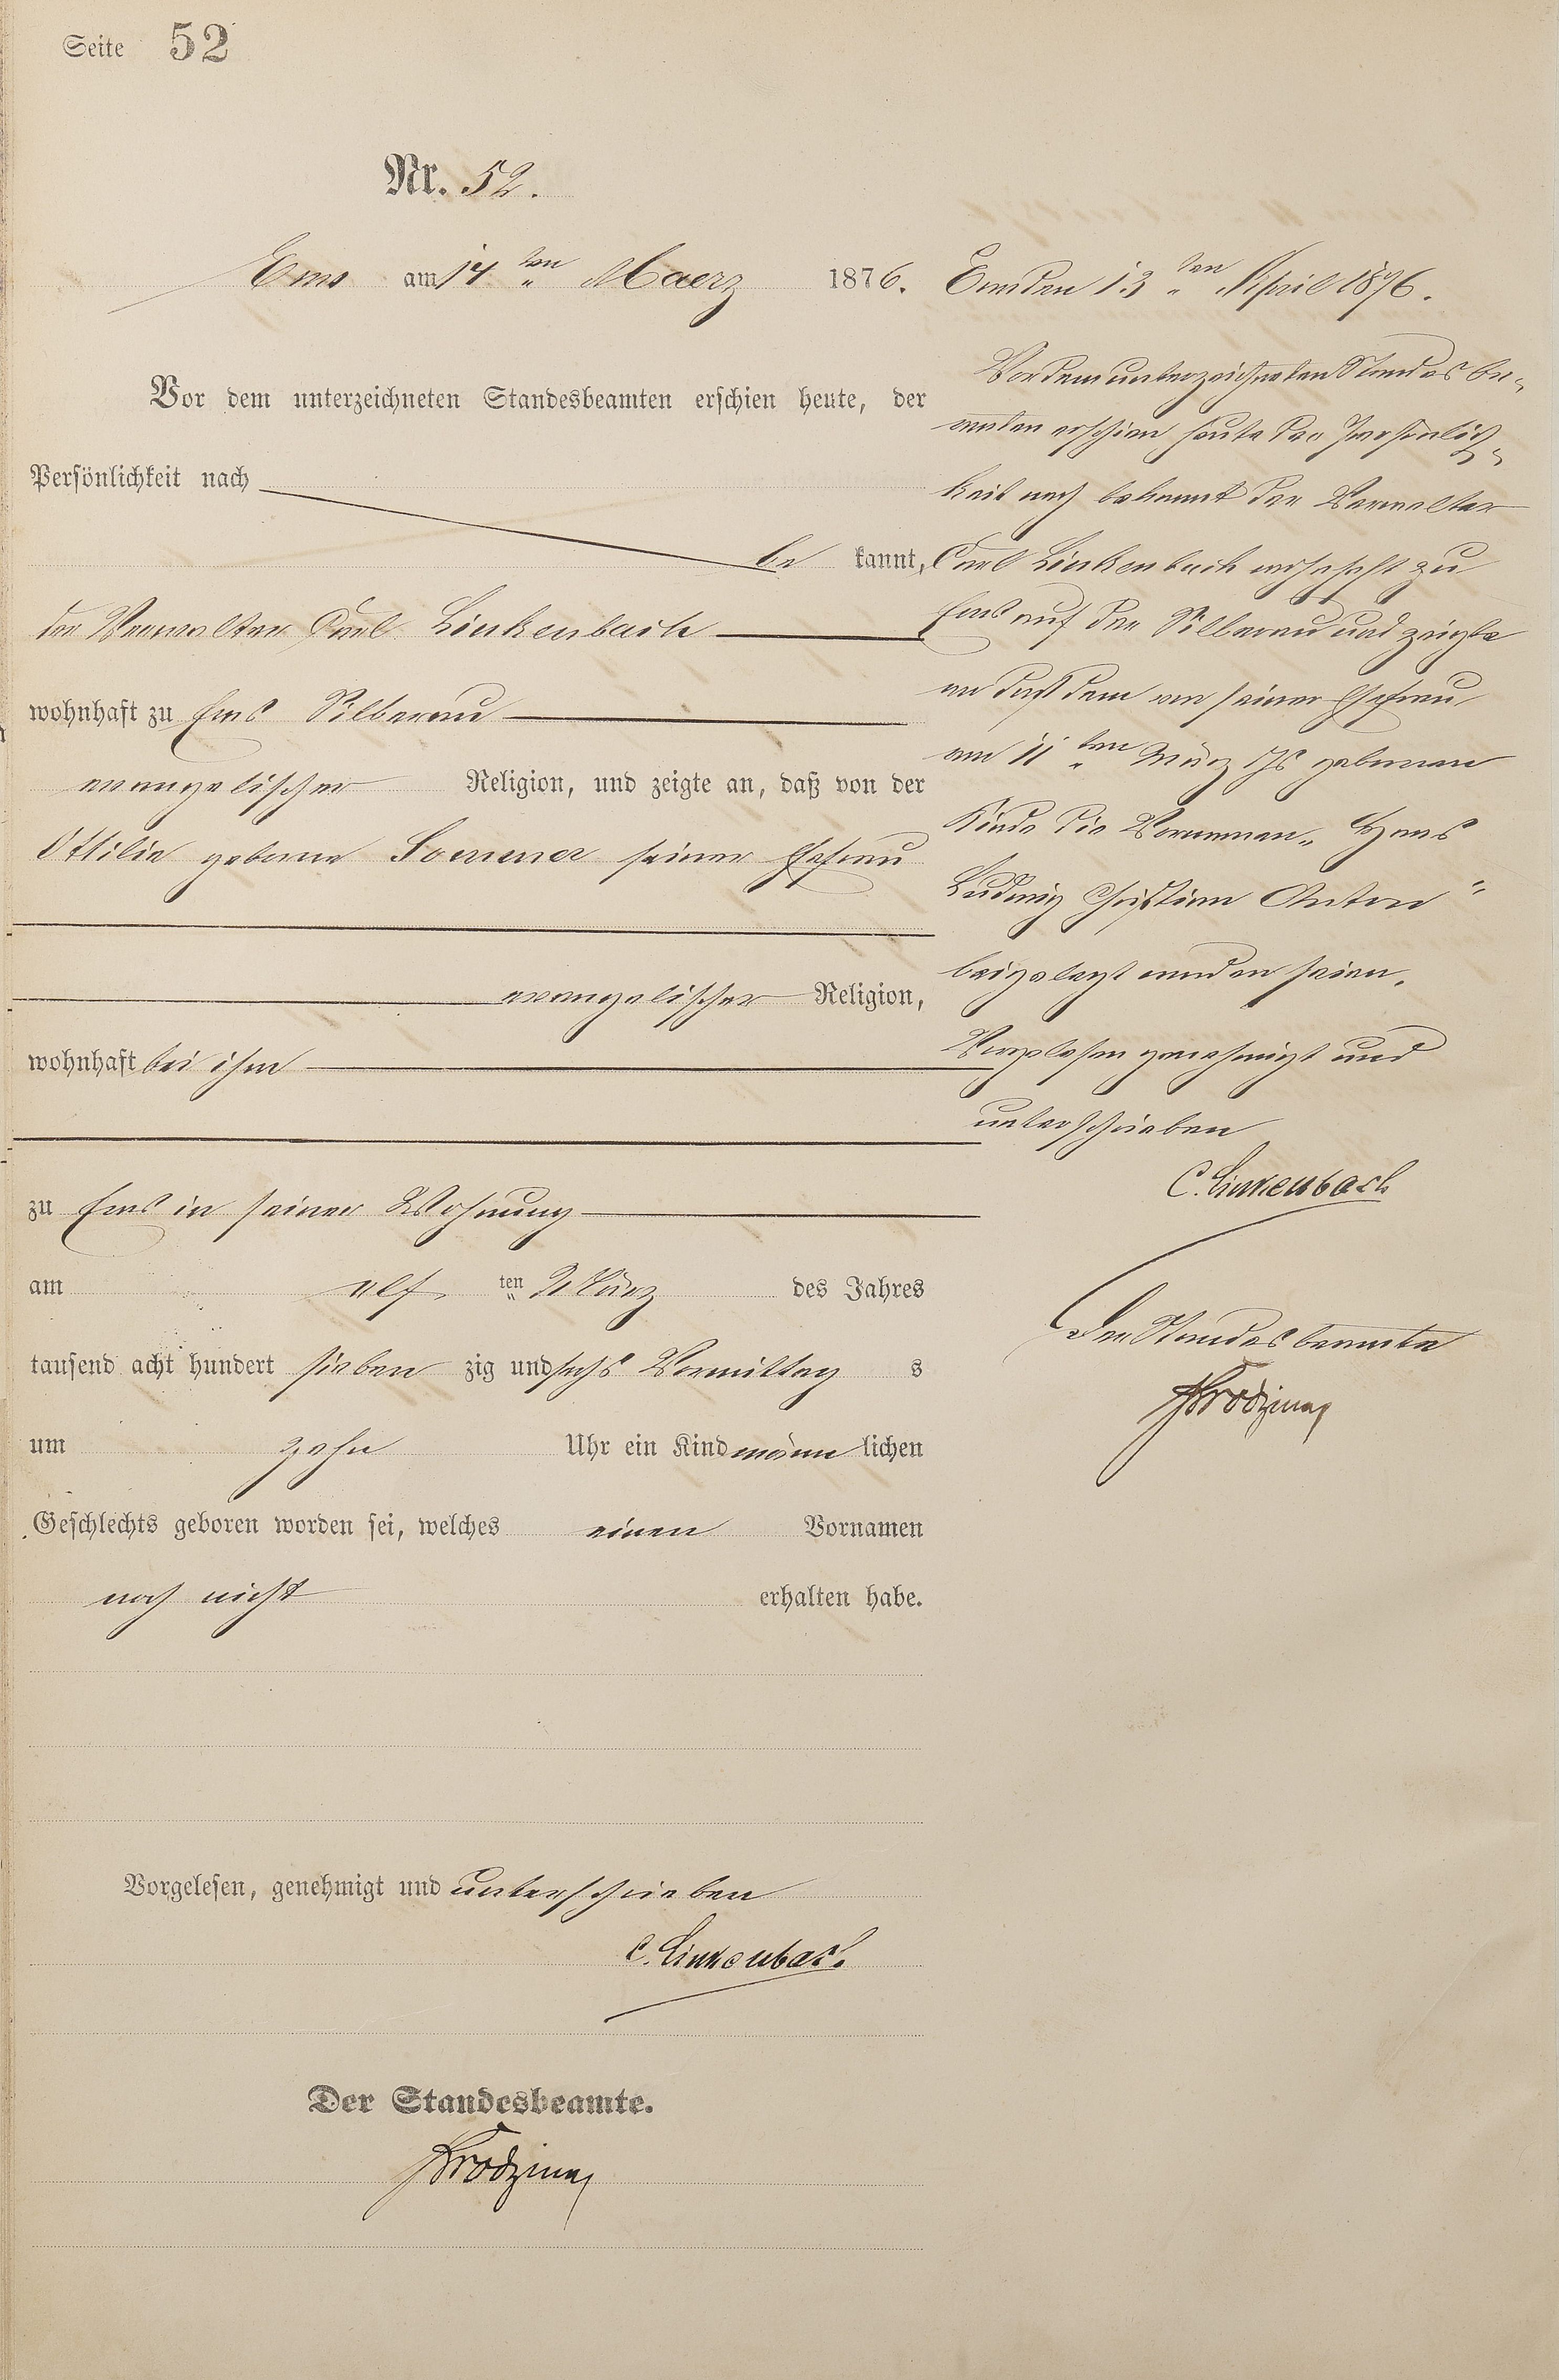 Seite 52
Nr. 52.
Ems am 14ten Maerz 1876.
Vor dem unterzeichneten Standesbeamten erschien heute, der
Persönlichkeit nach
be kannt,
der Verwalter Carl Linkenbach
wohnhaft zu Ems Silberau
evangelischer Religion, und zeigte an, daß von der
Ottilie geborne Sommer seiner Ehefrau
evangelischer Religion,
wohnhaft bei ihm
zu Ems in seiner Wohnung
am elf ten März des Jahres
tausend acht hundert sieben zig und sechs Vormittag s
um zehn Uhr ein Kind männ lichen
Geschlechts geboren worden sei, welches einen Vornamen
noch nicht erhalten habe.
Vorgelesen, genehmigt und unterschrieben
C. Linkenbach
Der Standesbeamte.
13ten April 1876.
Vor dem unterzeichneten Standesbe-
amten erschien heute der Persönlich-
keit nach bekannt der Verwalter
Carl Linkenbach wohnhaft zu
Ems auf der Silberau und zeigte
an daß dem von seiner Ehefrau
am 11ten März Js geborenen
Kinde die Vornamen „Hans
Ludwig Christian Anton"
beigelegt worden seien.
Vorgelesen genehmigt und
unterschrieben
C. Linkenbach
Der Standesbeamte